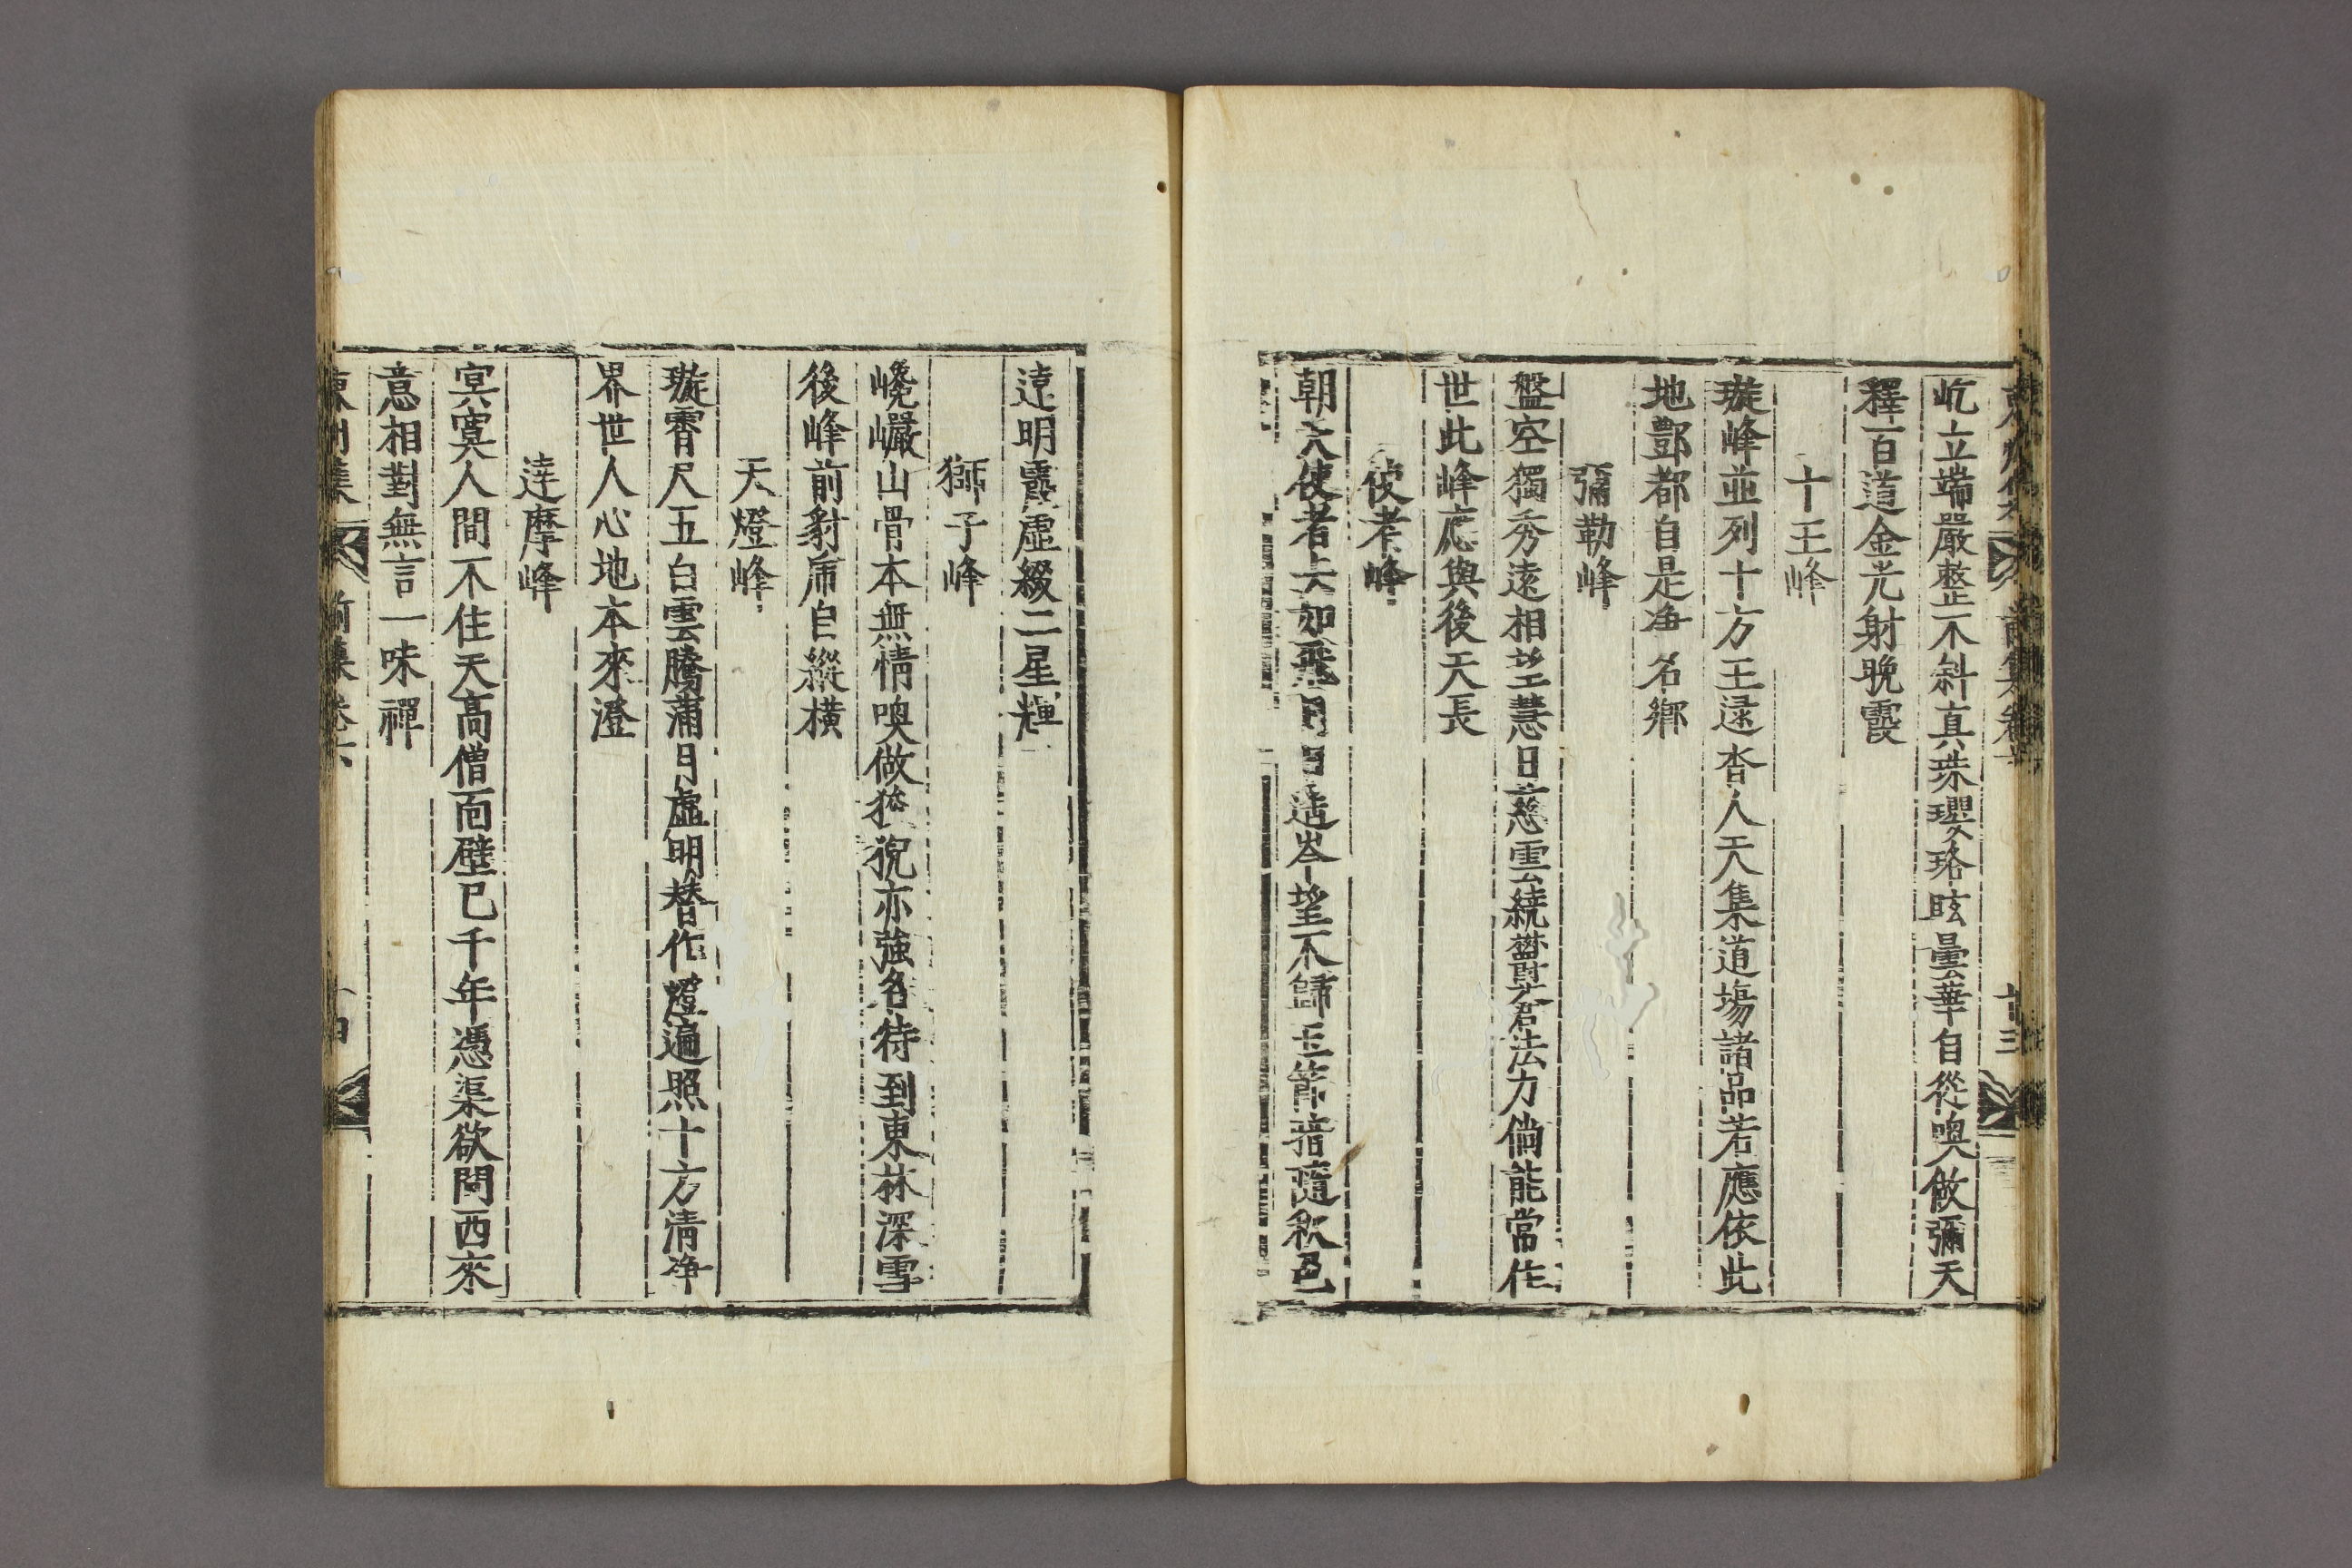 屹立端嚴整不斜真珠瓔珞眩曇華自從喚做彌天
釋百道金光射晚霞
十王峰
璇峰並列十方王逯杳人天集道場諸品若應依此
地酆都自是净名鄕
彌勒峰
盤空獨秀遠相望慧日慈雲繞欝蒼法力倘能當佳
世此峰應與後天長
使者峰
朝天使者去如飛日日岑望不歸玉節猎隨秋色
遠明霞虛綴二星輝
獅子峰
巉巖山骨本無情喚做狻猊亦強名待到東林深雪
後峰前豺席自縱橫
天燈峰
璇霄尺五白雲騰蒲月虛明替作燈遍照十方清净
界世人心地本來澄
達摩峰
㝠寞人間不住天髙僧面壁已千年憑渠欲問西來
意相對無言一味禪
東州集 前集卷六